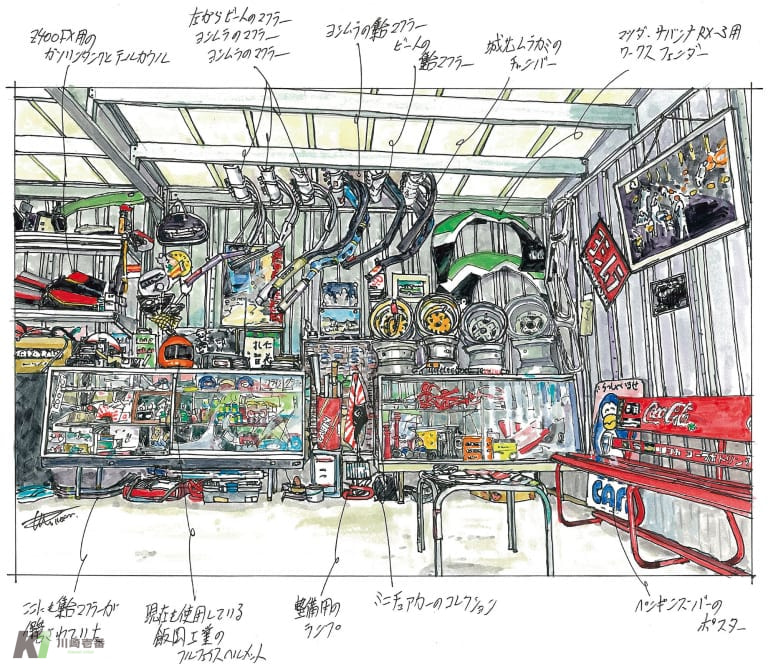 Z400FX用の
ガソリンタンクとテールカウル
左からビートのマフラー
ヨシムラのマフラー
ヨシムラのマフラー
ヨシムラの集合マフラー
ビートの
集合マフラー
城北ムラカミの
チャンバー
マツダ・サバンナRX-3用
ワークスフェンダー
Coca-Cola
CAFE
ここにも集合マフラーが
隠されていた
現在も使用している
飯田工業の
フルフェイスヘルメット
整備用の
ランプ
ミニチュアカーのコレクション
ペンギンズバーの
ポスター
K1 川崎壱番